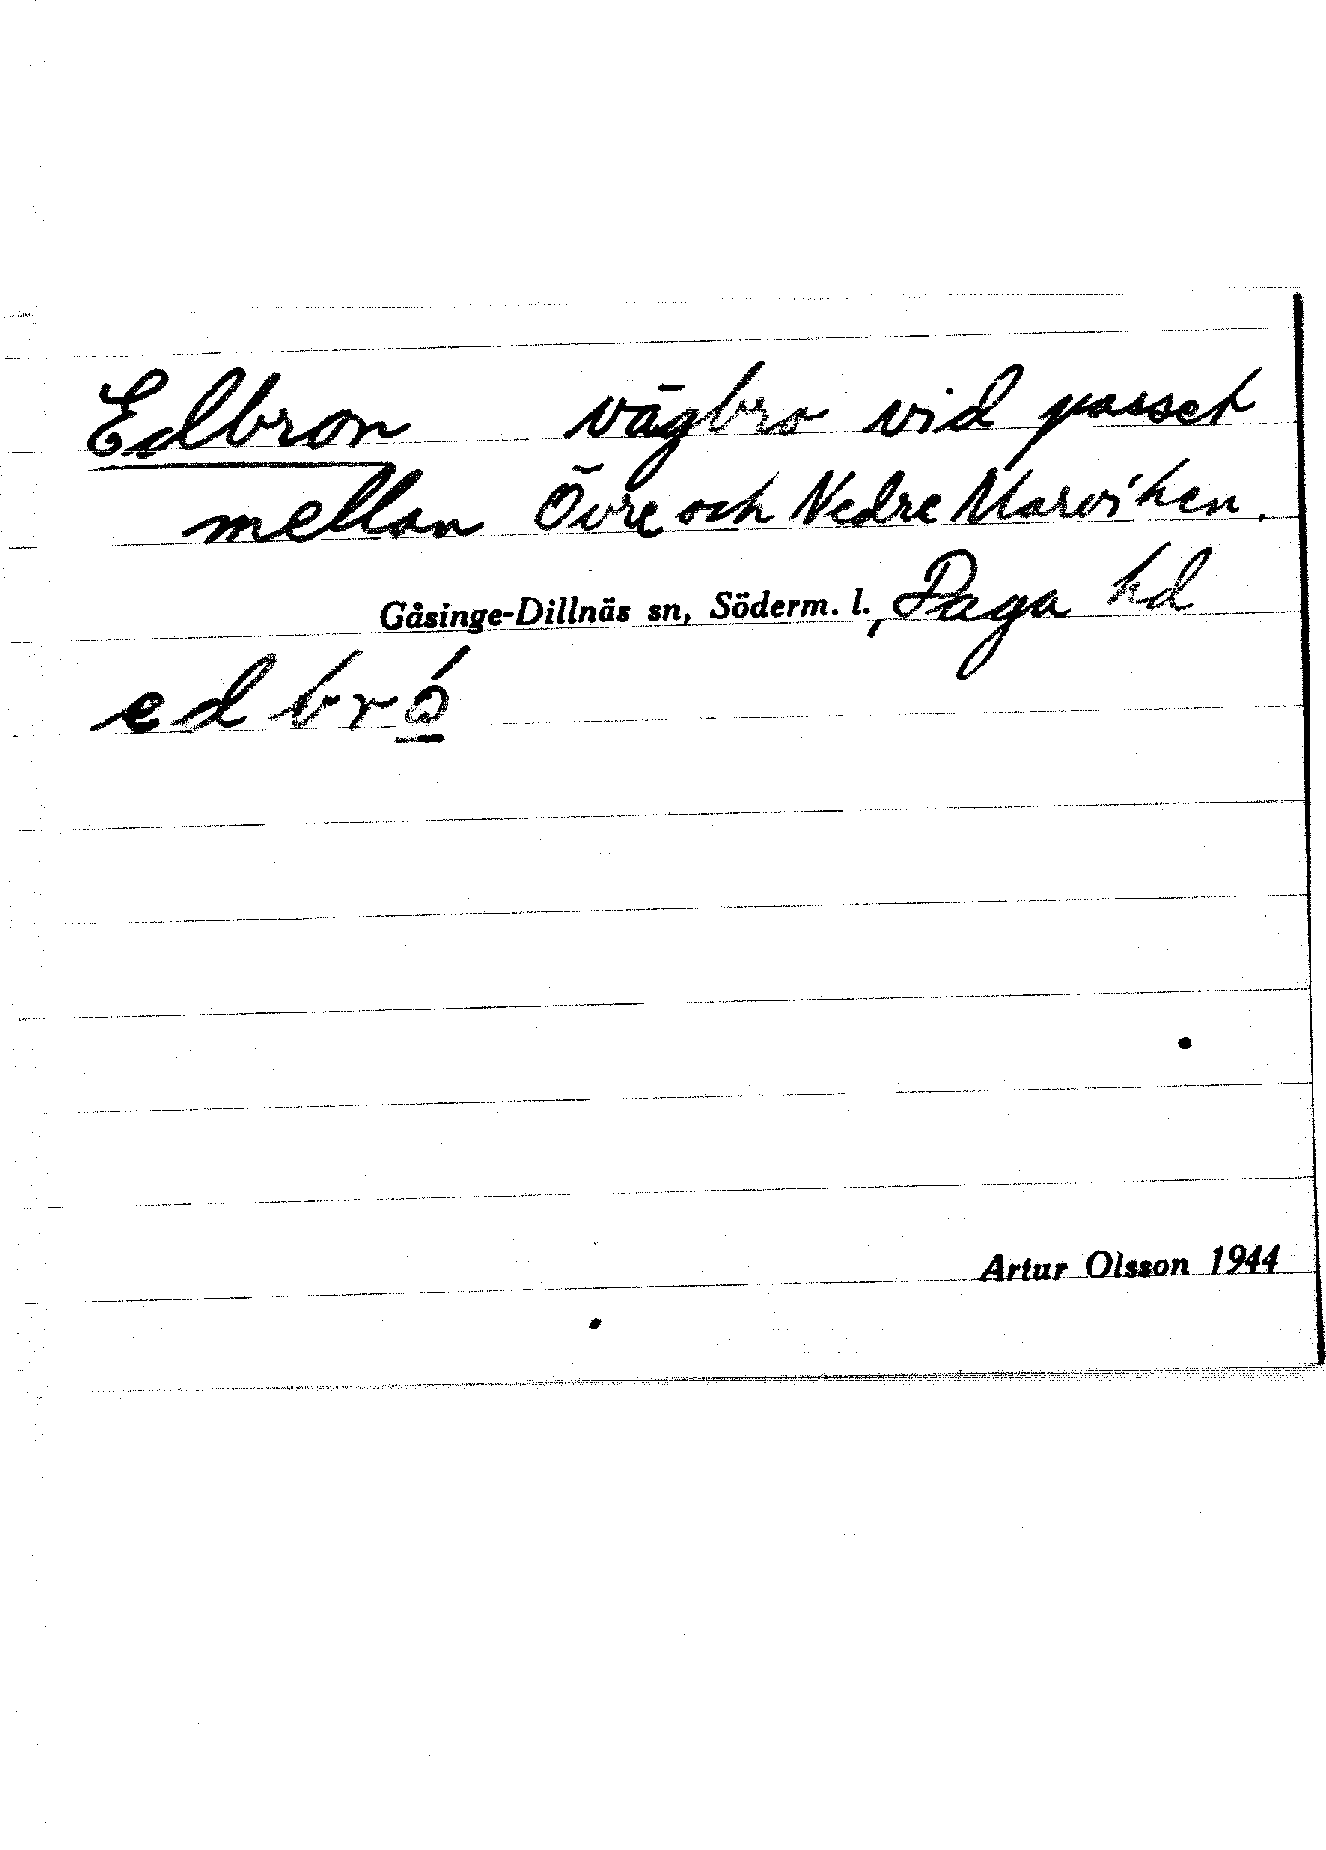 Edbron vägbro vid passet
mellan Övre och Nedre Marviken.
Gåsinge-Dillnäs sn, Söderm. l., Daga hd
edbró̲
Artur Olsson 1944